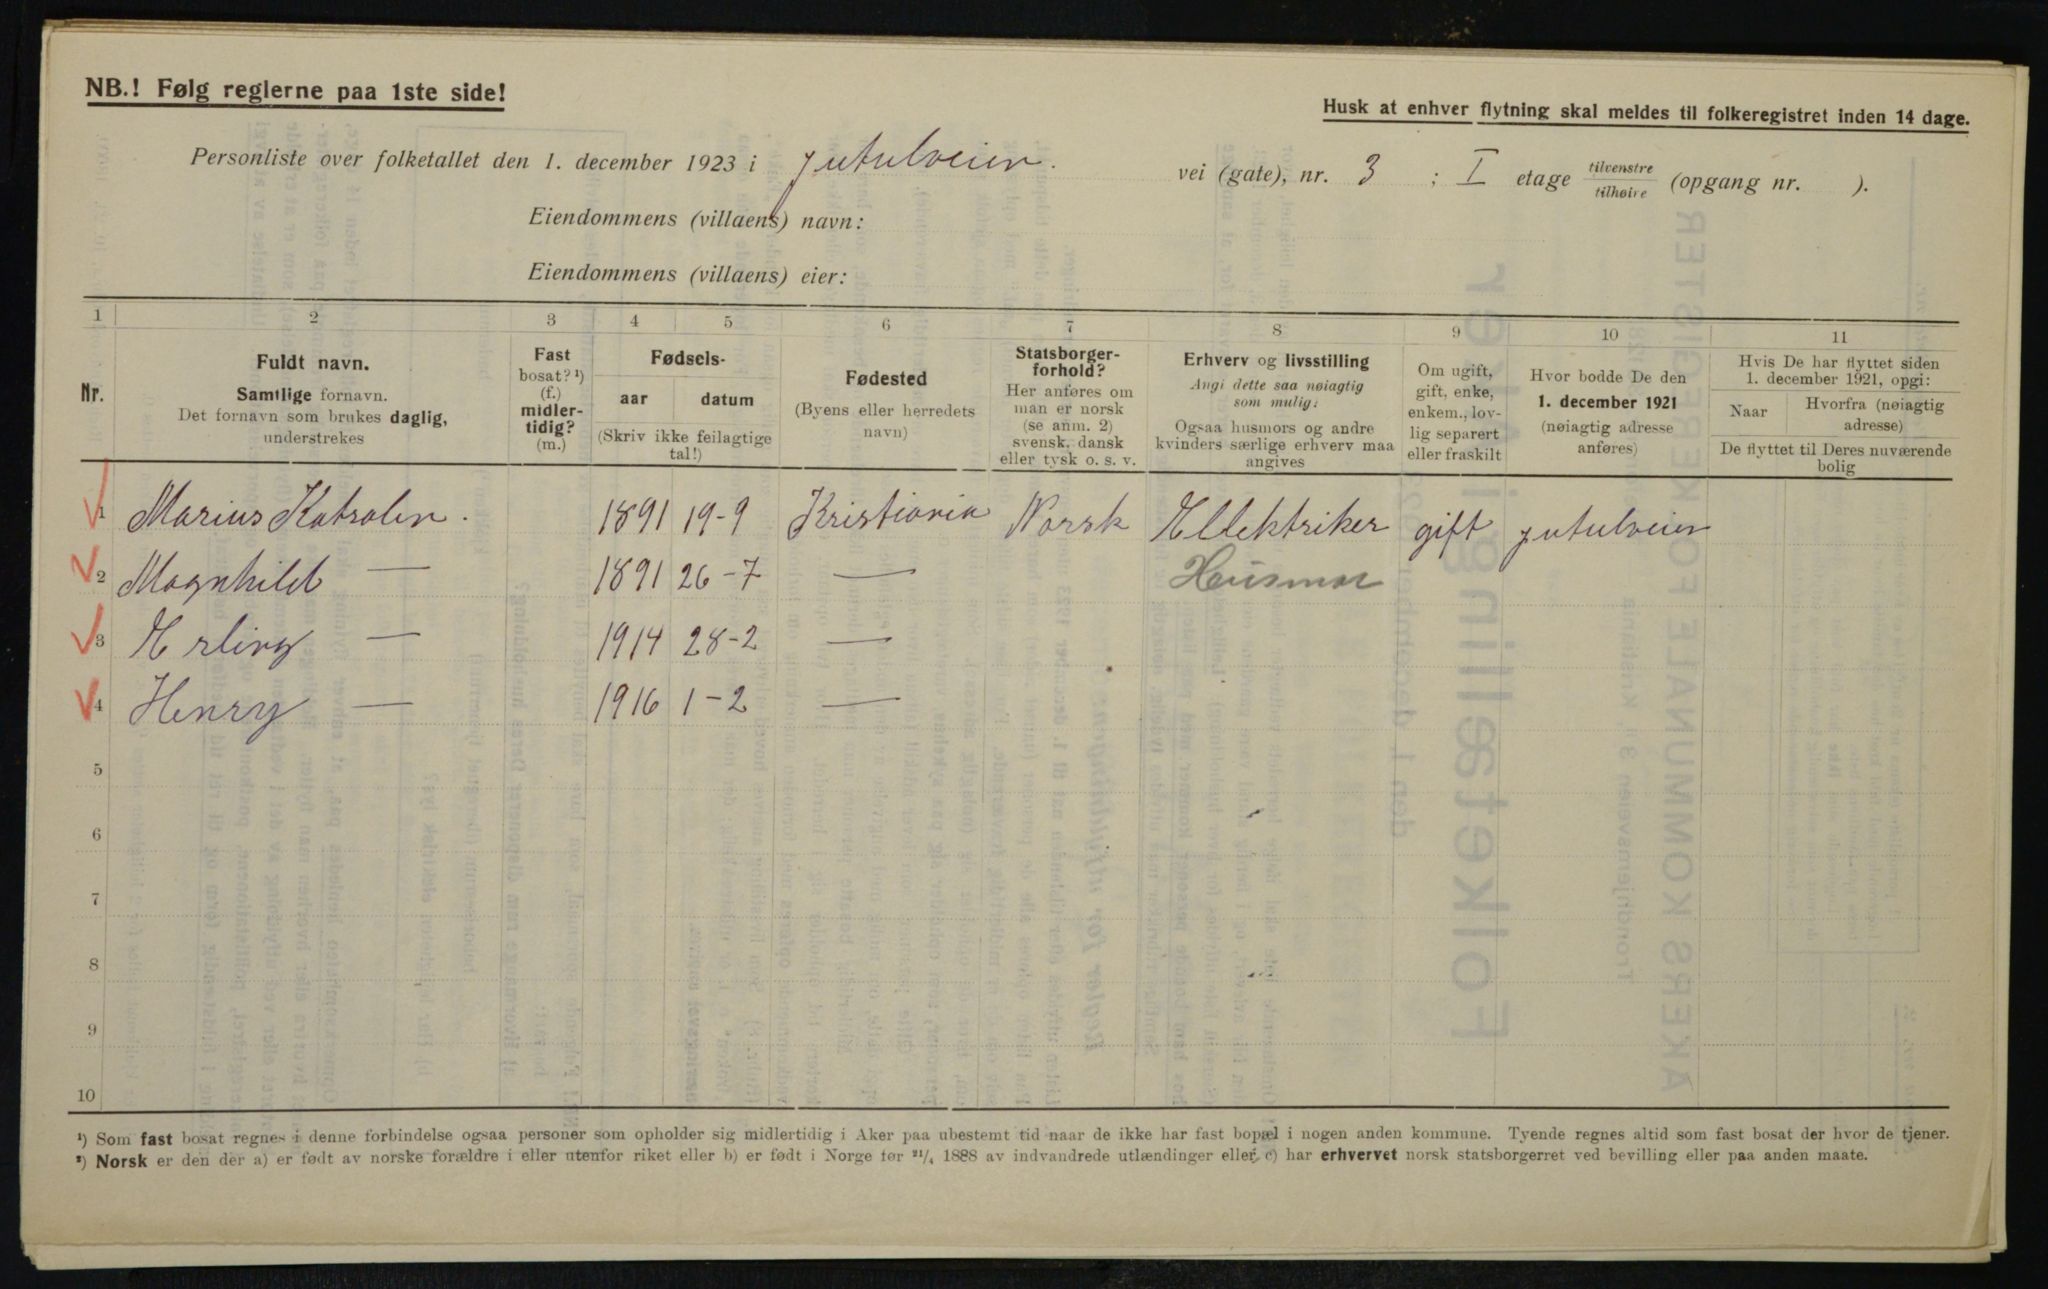 NB.! Følg reglerne paa 1ste side!
Husk at enhver flytning skal meldes til folkeregistret inden 14 dage.
Personliste over folketallet den 1. december 1923 i Jutulveien. vei (gate), nr. 3 ; I etage tilvenstre/tilhøire (opgang nr. ).
Eiendommens (villaens) navn:
Eiendommens (villaens) eier:
1 2 3 4 5 6 7 8 9 10 11
Nr.
Fuldt navn.
Samtlige fornavn.
Det fornavn som brukes daglig,
understrekes
Fast
bosat? ¹)
(f.)
midler-
tidig?
(m.)
Fødsels-
aar datum
(Skriv ikke feilagtige
tal!)
Fødested
(Byens eller herredets
navn)
Statsborger-
forhold?
Her anføres om
man er norsk
(se anm. 2)
svensk, dansk
eller tysk o. s. v.
Erhverv og livsstilling
Angi dette saa nøiagtig
som mulig:
Ogsaa husmors og andre
kvinders særlige erhverv maa
angives
Om ugift,
gift, enke,
enkem., lov-
lig separert
eller fraskilt
Hvor bodde De den
1. december 1921
(nøiagtig adresse
anføres)
Hvis De har flyttet siden
1. december 1921, opgi:
Naar
Hvorfra (nøiagtig
adresse)
De flyttet til Deres nuværende
bolig
1 Marius Katralen. 1891 19-9 Kristiania Norsk Ellektriker gift Jutulveien
2 Magnhild — 1891 26-7 — Husmor
3 Erling — 1914 28-2 —
4 Henry — 1916 1-2 —
5
6
7
8
9
10
¹) Som fast bosat regnes i denne forbindelse ogsaa personer som opholder sig midlertidig i Aker paa ubestemt tid naar de ikke har fast bopæl i nogen anden kommune. Tyende regnes altid som fast bosat der hvor de tjener.
²) Norsk er den der a) er født av norske forældre i eller utenfor riket eller b) er født i Norge før 21/4 1888 av indvandrede utlændinger eller c) har erhvervet norsk statsborgerret ved bevilling eller paa anden maate.